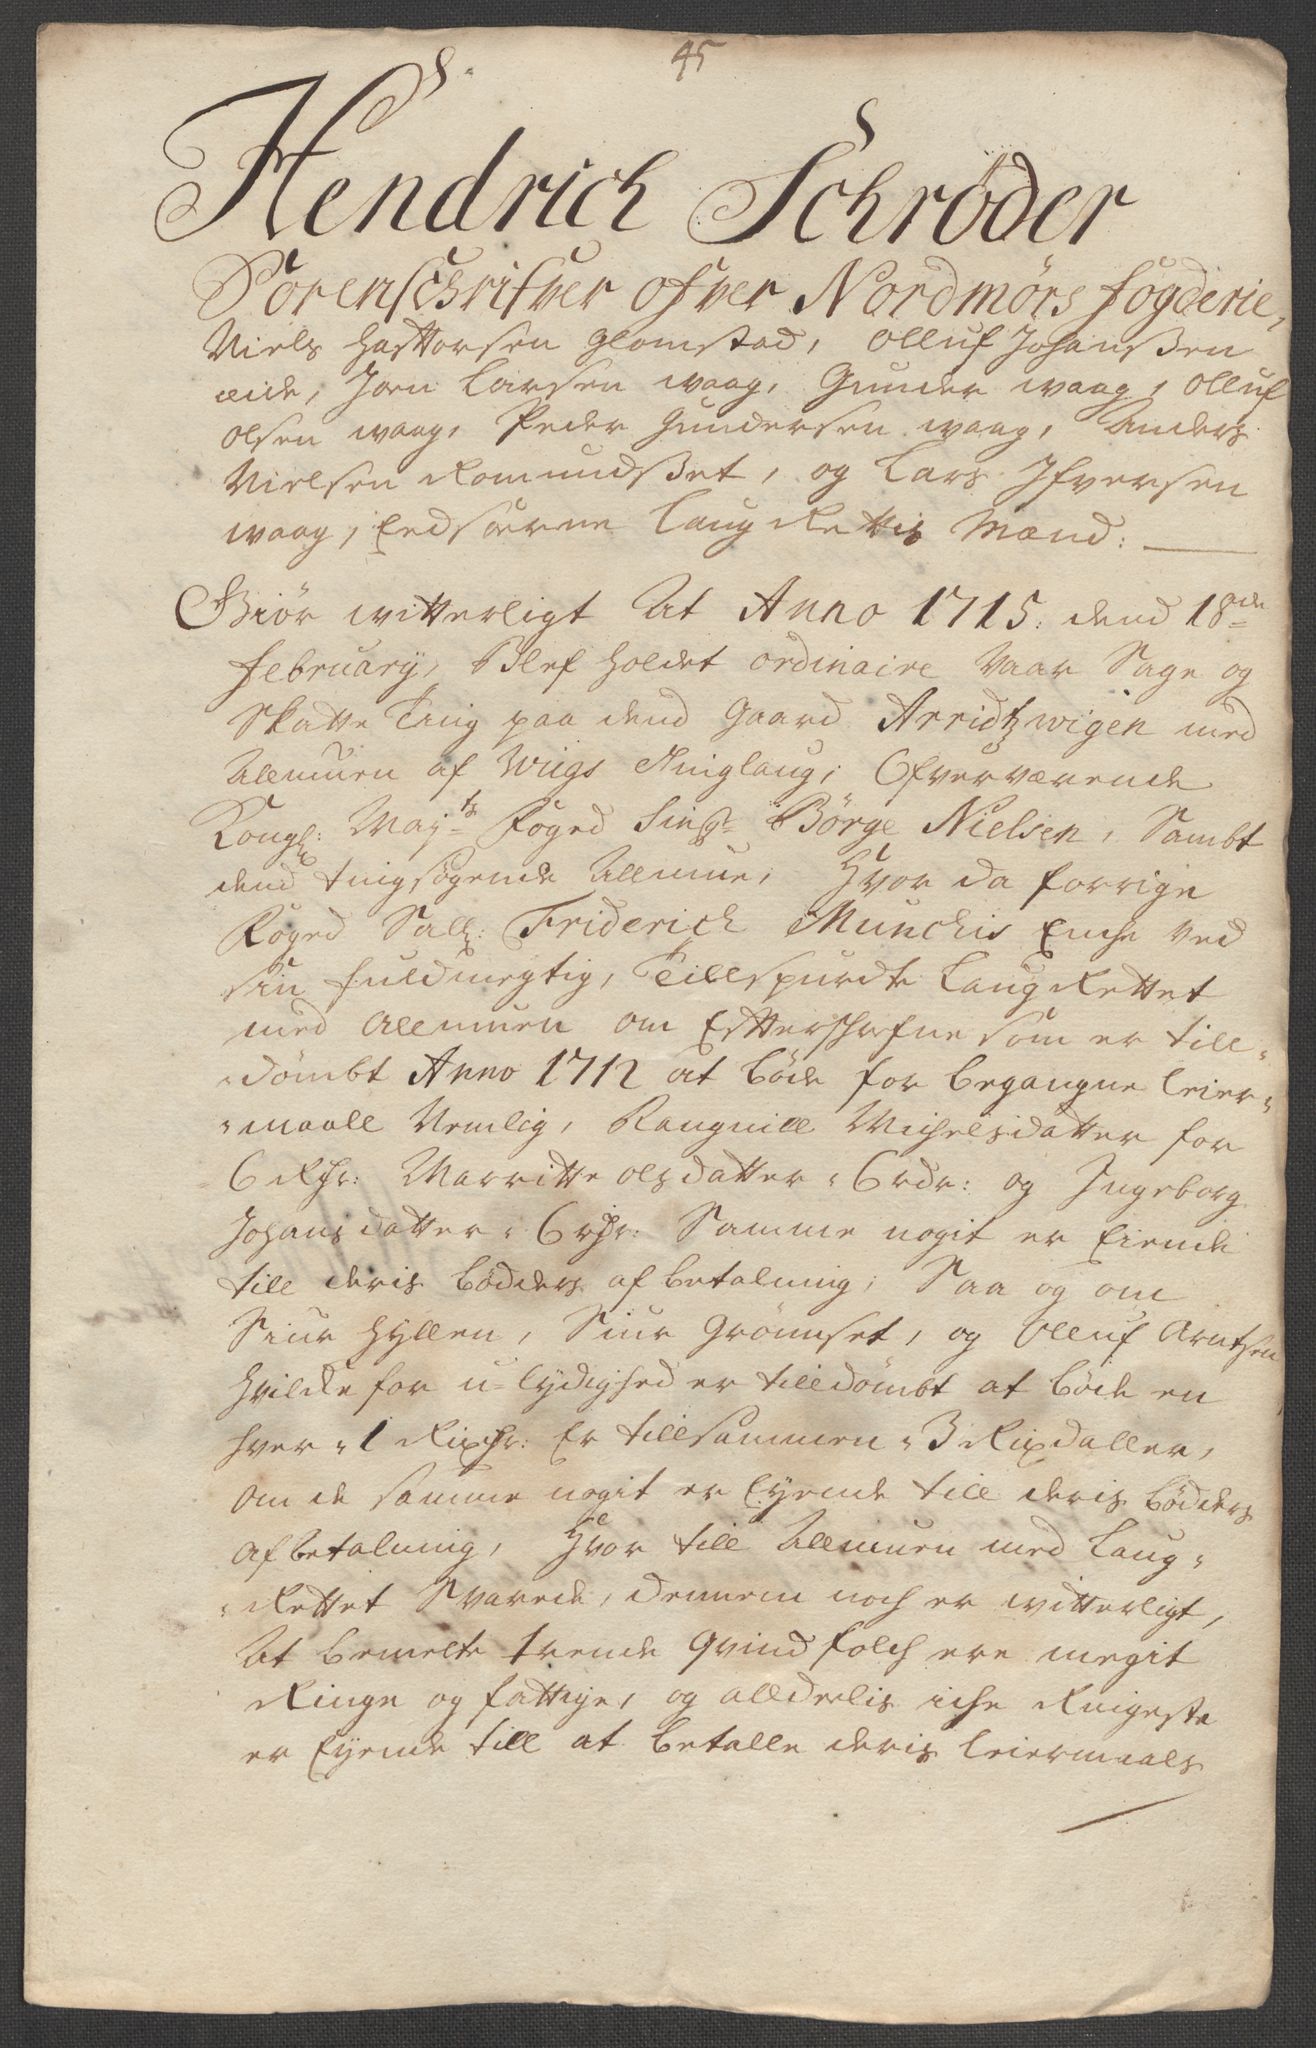 45
Hendrich Schrøder
Sorenschrifver ofver Nordmørs fogderie,
Niels Hattorsen Glomstad, Olluf Johanssen
eide, Joen Larsen waag, Gunder waag, Olluf
olsen waag, Peder Gundersen waag, Anders
Nielsen Romundsset, og Lars Ifversen
waag, Eedsorne Laug Rettis Mænd:
Giør witterligt At Anno 1715. dend 18de
February, Blef holdet ordinaire Vaar Sage og
Skatte Ting paa dend Gaard Arridtzwigen med
Allmuen af Wiigs Tinglaug, Ofverværende
Kongl: Mayts Foged Sinr Børge Nielsen, Sambt
dend tingsøgende Allmue, Hvor da forrige
Foged Sall: Friderich Munchis Enche ved
sin fuldmegtig, Tillspurdte Laug Rettet
med Allmuen om Efterschrefne som er till-
dømbt Anno 1712 at bøde for begangne leier-
maall Nemlig, Rangnill Michelsdatter for
6 Rdr: Marritte olsdatter 6 rdr: og Ingeborg
Johansdatter 6 rdr: Samme nogit er Eiende
till deris bødders afbetalning, Saa og om
Siur Hyllen, Siur Grønset, og Olluf Arntsen
hvilcke for u-lydighed er tilldømbt at bøde en
hver 1 Rixdr: Er tillsammen 3 Rixdaller,
om de samme nogit er Eyende till deris bødders
afbetalning, Hvor till Allmuen med Laug-
Rettet Svarede, dennem noch er witterligt,
At bemelte trende qvindfolch ere megit
Ringe og fattige, og alldelis iche Ringeste
er Eyende till at betalle deris leiermaals